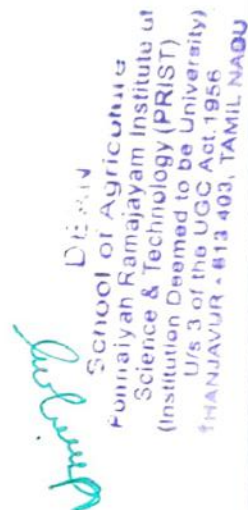 DEAN
School of Agriculture
Ponnaiyah Ramajayam Institute of
Science & Technology (PRIST)
(Institution Deemed to be University)
U/s 3 of the UGC Act. 1956
THANJAVUR - 613 403, TAMIL NADU